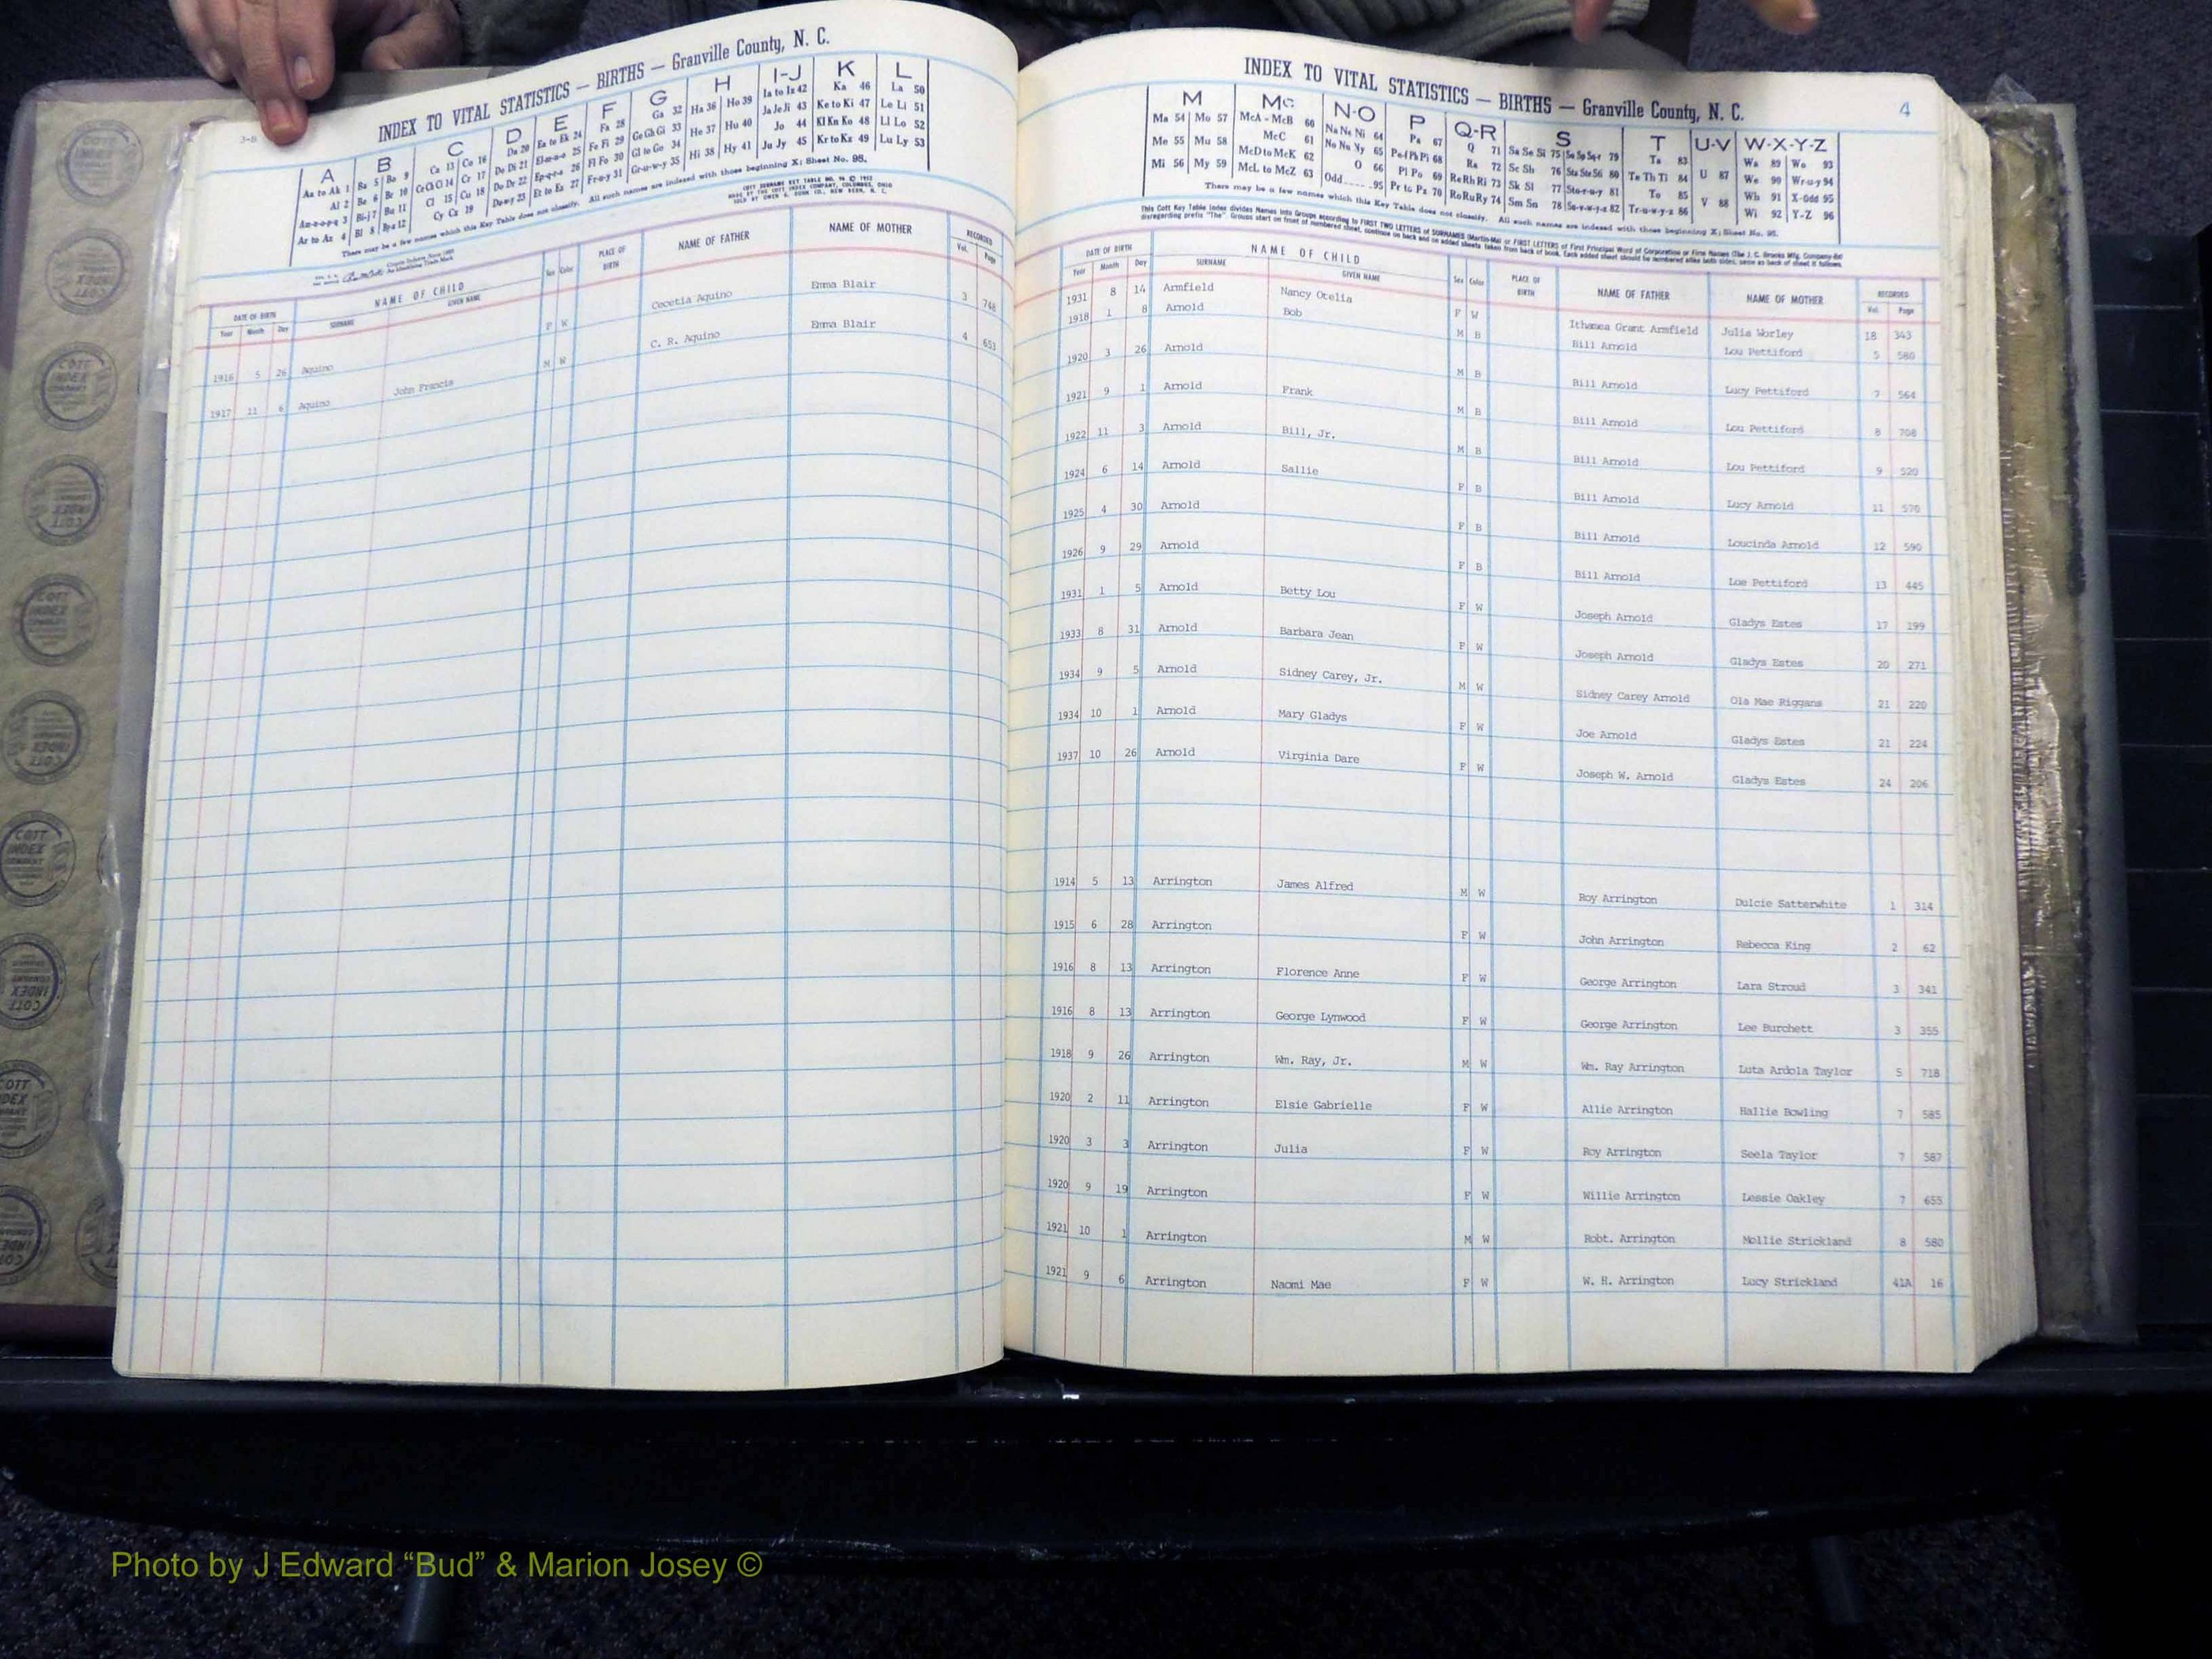 INDEX TO VITAL STATISTICS — BIRTHS — Granville County, N. C.
A B C D E F G H I-J K L
Aa to Ak 1 Ba 5 Bo 9 Ca 13 Co 16 Da 20 Ea to Ek 24 Fa 28 Ga 32 Ha 36 Ho 39 Ia to Iz 42 Ka 46 La 50
Al 2 Be 6 Br 10 Ce Ch Ci 14 Cr 17 De Di 21 El-m-n-o 25 Fe Fi 29 Ge Gh Gi 33 He 37 Hu 40 Ja Je Ji 43 Ke to Ki 47 Le Li 51
Am-n-o-p-q 3 Bi-j 7 Bu 11 Cl 15 Cu 18 Do Dr 22 Ep-q-r-s 26 Fl Fo 30 Gl to Go 34 Hi 38 Hy 41 Jo 44 Kl Kn Ko 48 Ll Lo 52
Ar to Az 4 Bl 8 By-z 12 Cy Cz 19 Du-w-y 23 Et to Ez 27 Fr-u-y 31 Gr-u-w-y 35 Ju Jy 45 Kr to Kz 49 Lu Ly 53
There may be a few names which this Key Table does not classify. All such names are indexed with those beginning X; Sheet No. 95.
DATE OF BIRTH NAME OF CHILD Sex Color PLACE OF BIRTH NAME OF FATHER NAME OF MOTHER RECORDED
Year Month Day SURNAME GIVEN NAME Vol. Page
1916 5 26 Aquino F W Cecetia Aquino Emma Blair 3 748
1917 11 6 Aquino John Francis M W C. R. Aquino Emma Blair 4 653
INDEX TO VITAL STATISTICS — BIRTHS — Granville County, N. C. 4
M Mc N-O P Q-R S T U-V W-X-Y-Z
Ma 54 Mo 57 McA - McB 60 Na Ne Ni 64 Pa 67 Q 71 Sa Se Si 75 So Sp Sq-r 79 Ta 83 U 87 Wa 89 Wo 93
Me 55 Mu 58 McC 61 No Nu Ny 65 Pe-f Ph Pi 68 Ra 72 Sc Sh 76 Sta Ste Sti 80 Te Th Ti 84 V 88 We 90 Wr-u-y 94
Mi 56 My 59 McD to McK 62 O 66 Pl Po 69 Re Rh Ri 73 Sk Sl 77 Sto-r-u-y 81 To 85 Wh 91 X-Odd 95
McL to McZ 63 Odd 95 Pr to Pz 70 Ro Ru Ry 74 Sm Sn 78 Su-v-w-y-z 82 Tr-u-w-y-z 86 Wi 92 Y-Z 96
There may be a few names which this Key Table does not classify. All such names are indexed with those beginning X; Sheet No. 95.
DATE OF BIRTH NAME OF CHILD Sex Color PLACE OF BIRTH NAME OF FATHER NAME OF MOTHER RECORDED
Year Month Day SURNAME GIVEN NAME Vol. Page
1931 8 14 Armfield Nancy Otelia F W Ithamea Grant Armfield Julia Worley 18 343
1918 1 8 Arnold Bob M B Bill Arnold Lou Pettiford 5 580
1920 3 26 Arnold M B Bill Arnold Lucy Pettiford 7 564
1921 9 1 Arnold Frank M B Bill Arnold Lou Pettiford 8 708
1922 11 3 Arnold Bill, Jr. M B Bill Arnold Lou Pettiford 9 520
1924 6 14 Arnold Sallie F B Bill Arnold Lucy Arnold 11 570
1925 4 30 Arnold F B Bill Arnold Loucinda Arnold 12 590
1926 9 29 Arnold F B Bill Arnold Lue Pettiford 13 445
1931 1 5 Arnold Betty Lou F W Joseph Arnold Gladys Estes 17 199
1933 8 31 Arnold Barbara Jean F W Joseph Arnold Gladys Estes 20 271
1934 9 5 Arnold Sidney Carey, Jr. M W Sidney Carey Arnold Ola Mae Riggans 21 220
1934 10 1 Arnold Mary Gladys F W Joe Arnold Gladys Estes 21 224
1937 10 26 Arnold Virginia Dare F W Joseph W. Arnold Gladys Estes 24 206
1914 5 13 Arrington James Alfred M W Roy Arrington Dulcie Satterwhite 1 314
1915 6 28 Arrington F W John Arrington Rebecca King 2 62
1916 8 13 Arrington Florence Anne F W George Arrington Lara Stroud 3 341
1916 8 13 Arrington George Lynwood F W George Arrington Lee Burchett 3 355
1918 9 26 Arrington Wm. Ray, Jr. M W Wm. Ray Arrington Luta Ardola Taylor 5 718
1920 2 11 Arrington Elsie Gabrielle F W Allie Arrington Hallie Bowling 7 585
1920 3 3 Arrington Julia F W Roy Arrington Seela Taylor 7 587
1920 9 19 Arrington F W Willie Arrington Lessie Oakley 7 655
1921 10 1 Arrington M W Robt. Arrington Mollie Strickland 8 580
1921 9 6 Arrington Naomi Mae F W W. H. Arrington Lucy Strickland 41A 16
Photo by J Edward “Bud” & Marion Josey ©